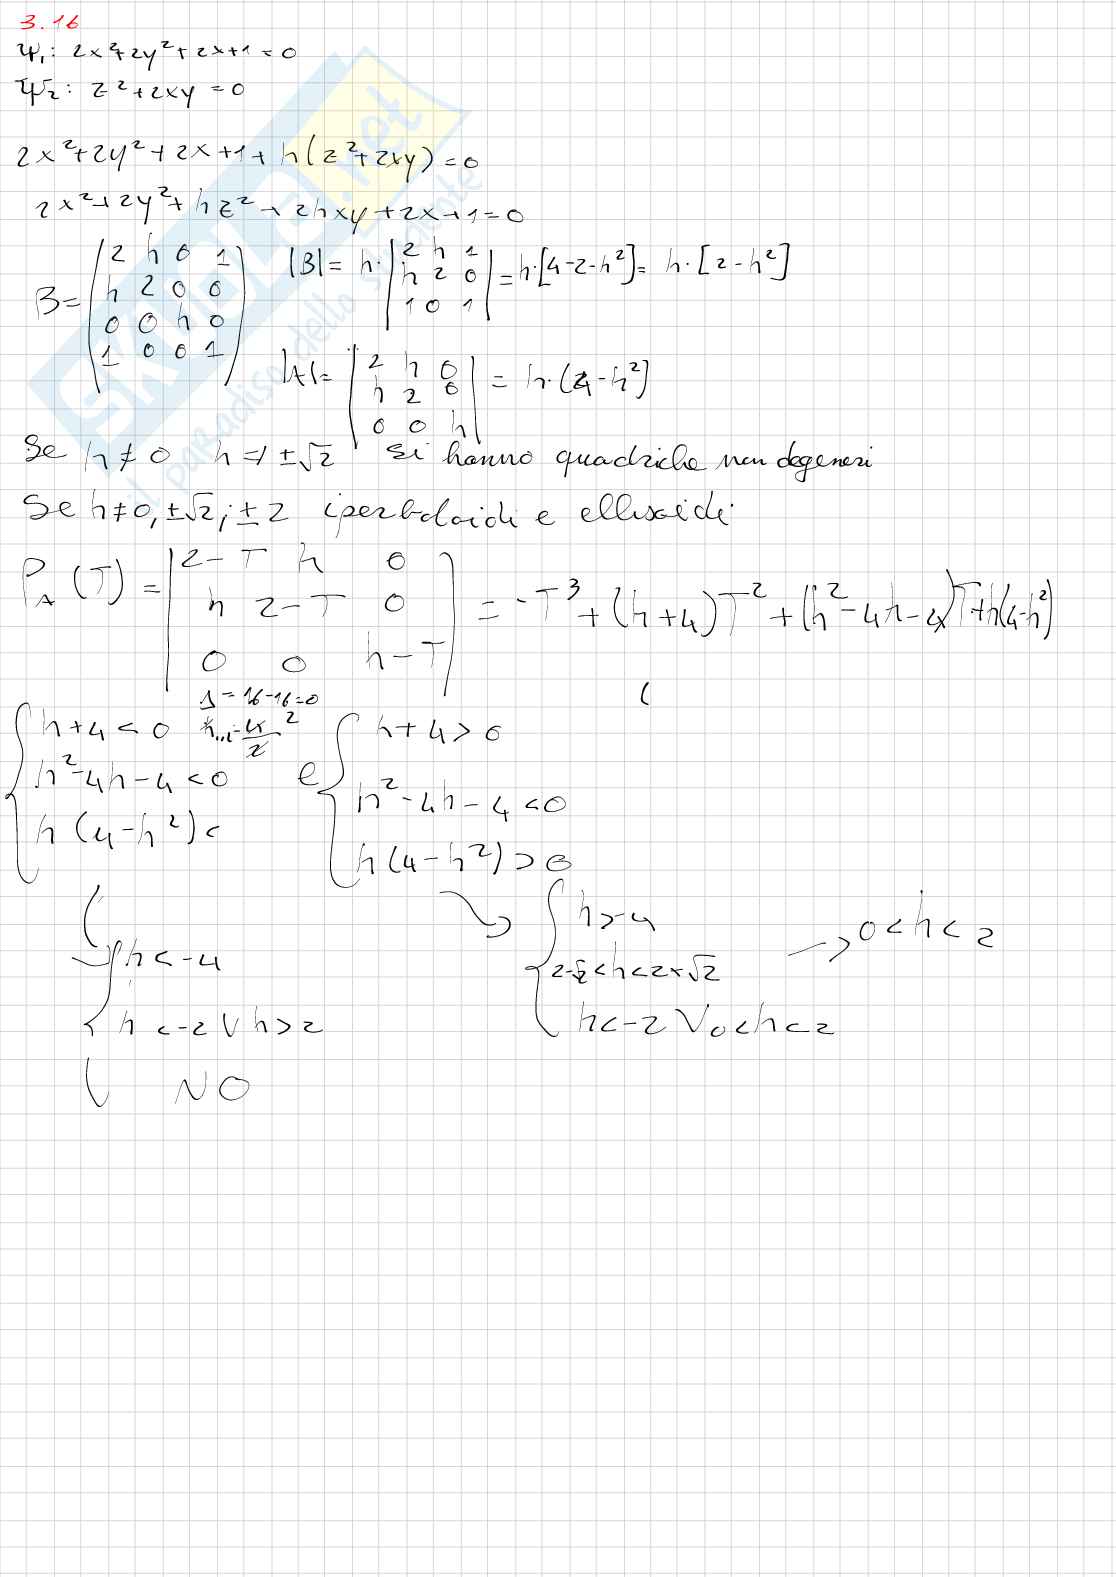 3.16
Ψ₁: 2x²+2y²+2x+1=0
Ψ₂: z²+2xy=0
2x²+2y²+2x+1+h(z²+2xy)=0
2x²+2y²+hz²+2hxy+2x+1=0
B= (2 h 0 1
h 2 0 0
0 0 h 0
1 0 0 1)
|B|= h·|2 h 1
h 2 0
1 0 1| =h·[4-2-h²]= h·[2-h²]
|A|= |2 h 0
h 2 0
0 0 h| = h·(4-h²)
Se h≠0 h≠±√2 si hanno quadriche non degeneri
Se h≠0,±√2,±2 iperboloidi e ellissoidi
P_A(T)= |2-T h 0
h 2-T 0
0 0 h-T| = -T³+(h+4)T²+(h²-4h-4)T+h(4-h²)
Δ=16-16=0
{h+4<0
h²-4h-4<0
h(4-h²)<
e {h+4>0
h²-4h-4<0
h(4-h²)>0
{h<-4
h<-2 V h>2
NO
{h>-4
2-√2<h<2+√2
h<-2 V 0<h<2
→ 0<h<2
SKUOLA.net
il paradiso dello studente